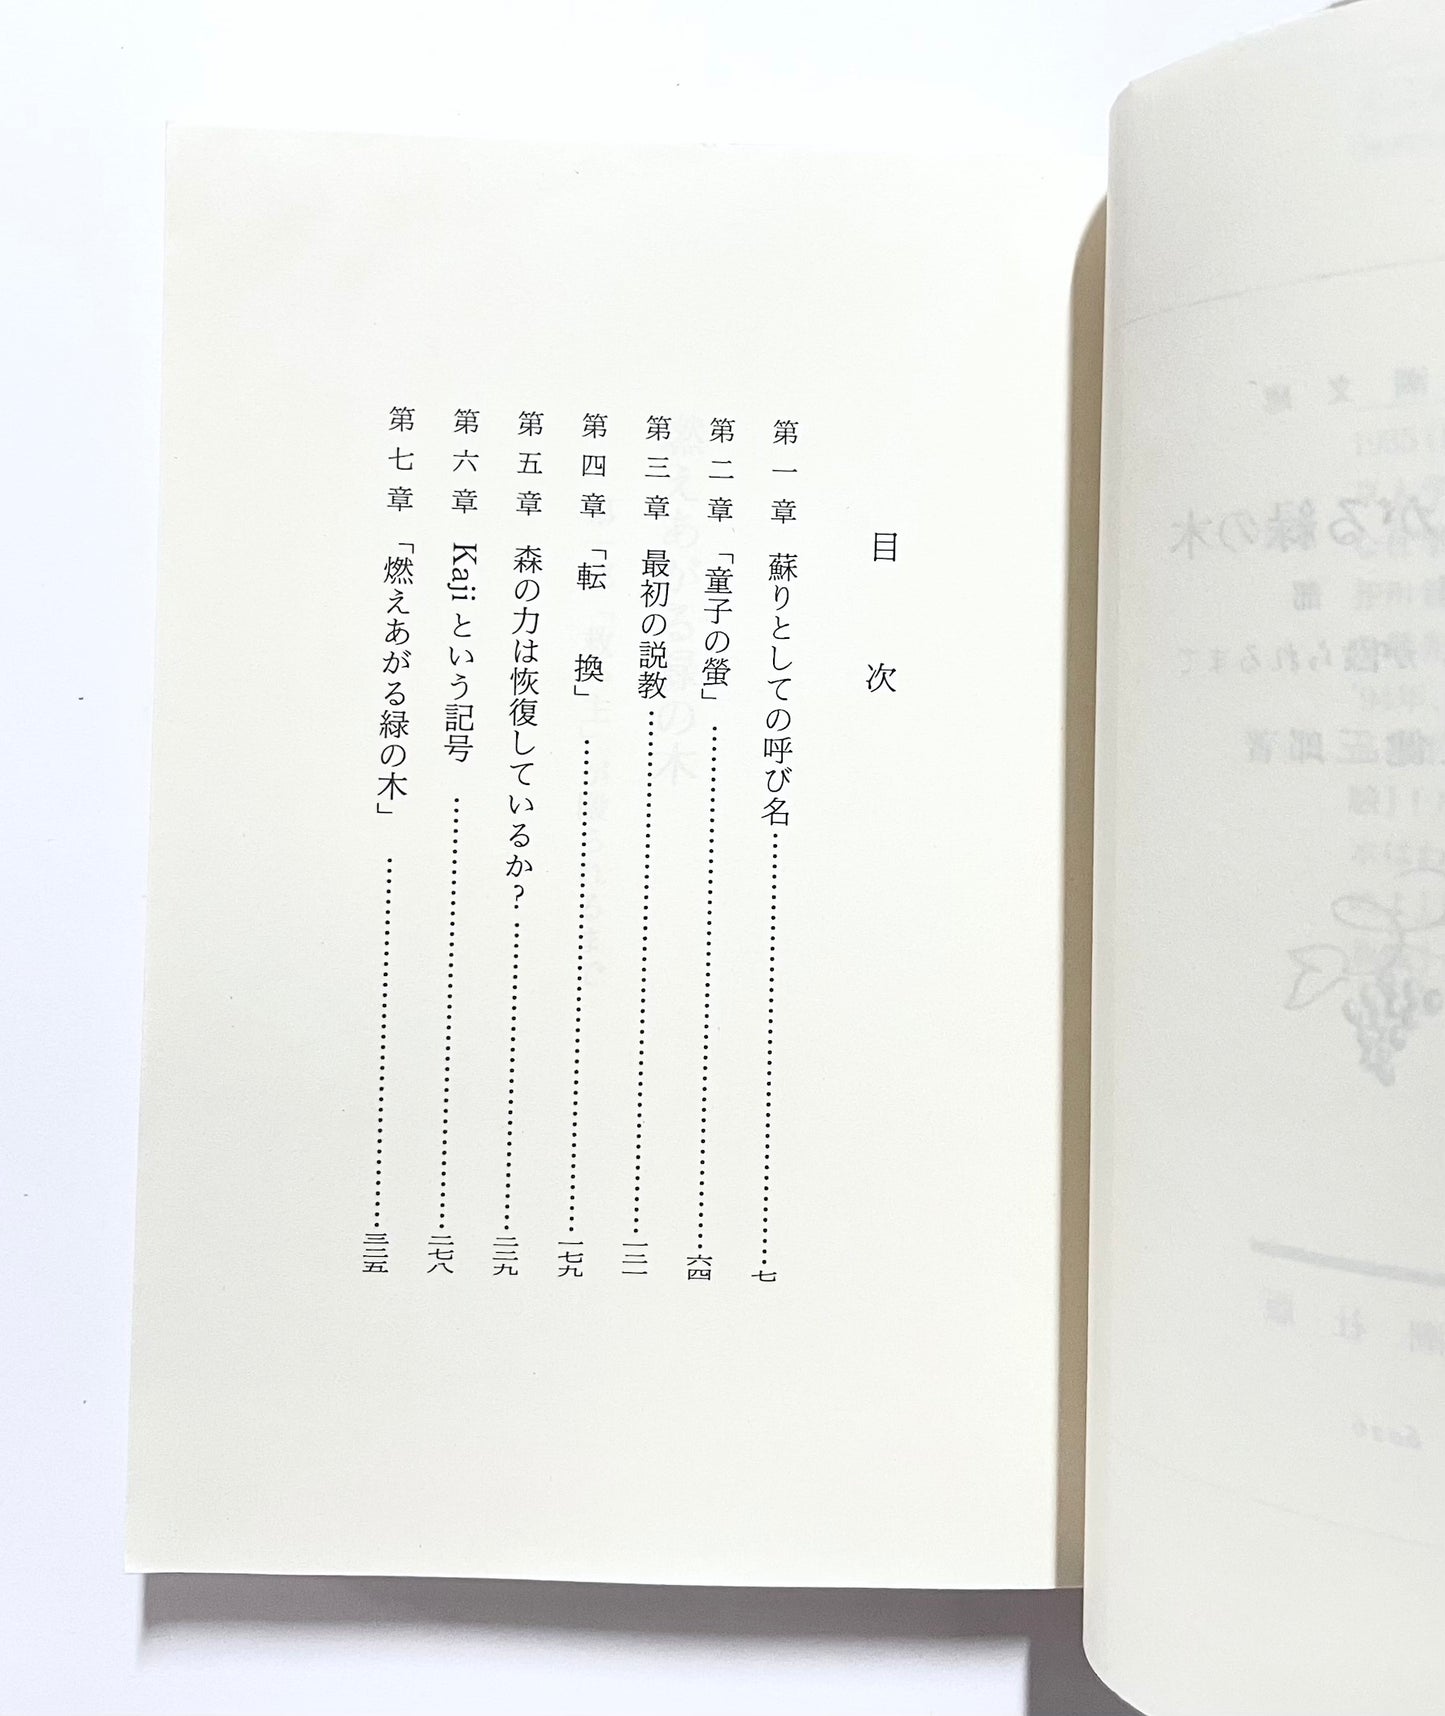 目次
第一章 蘇りとしての呼び名……七
第二章 「童子の螢」……六四
第三章 最初の説教……一二一
第四章 「転換」……一七九
第五章 森の力は恢復しているか?……二三九
第六章 Kajiという記号……二七八
第七章 「燃えあがる緑の木」……三三五